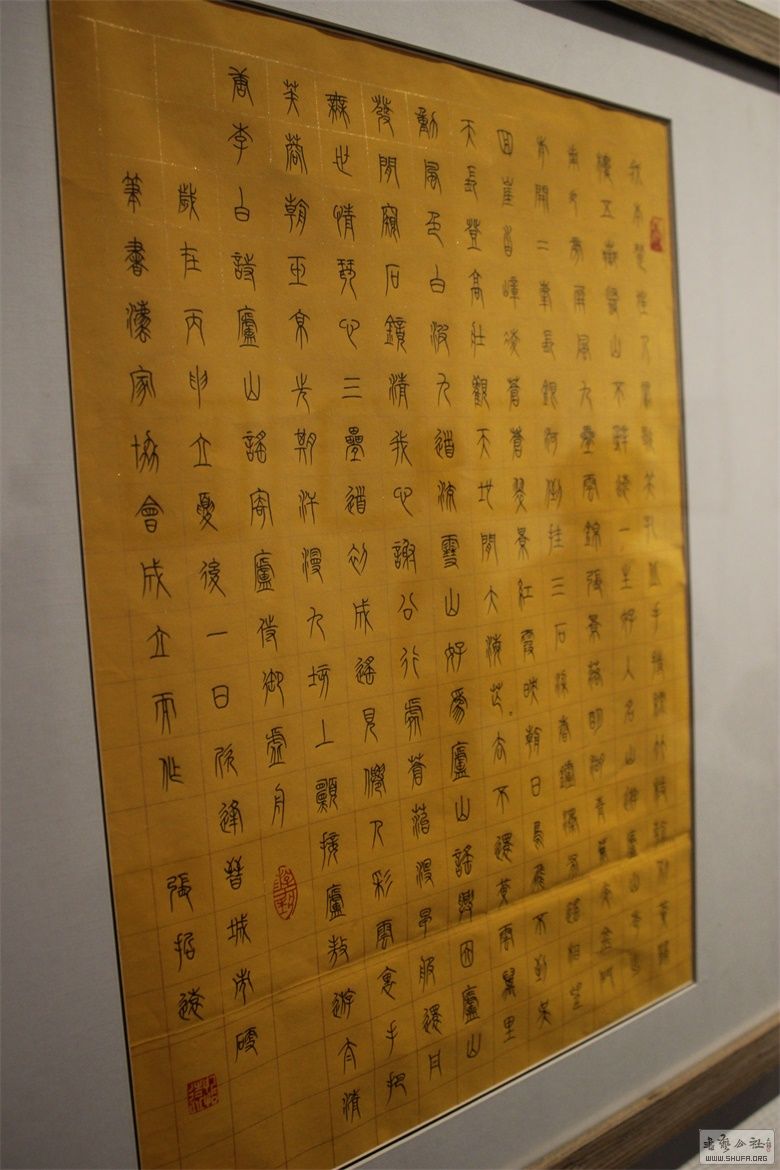 我本楚狂人鳳歌笑孔丘手持綠玉杖朝別黃鶴
樓五嶽尋仙不辭遠一生好入名山遊廬山秀出
南斗旁屏風九疊雲錦張影落明湖青黛光金闕
前開二峯長銀河倒挂三石梁香爐瀑布遙相望
回崖沓嶂凌蒼蒼翠景紅霞映朝日鳥飛不到吳
天長登高壯觀天地間大江茫茫去不還黃雲萬里
動風色白波九道流雪山好為廬山謠興因廬山
發閒窺石鏡清我心謝公行處蒼苔沒早服還丹
無世情琴心三疊道初成遙見僊人彩雲裏手把
芙蓉朝玉京先期汗漫九垓上願接盧敖遊太清
唐李白詩廬山謠寄盧侍御虛舟
歲在丙申立夏後一日欣逢晉城市硬
筆書灋家協會成立而作 張
書藝公社
WWW.SHUFA.ORG